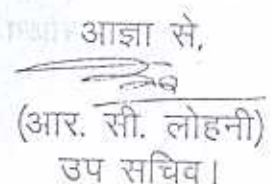 आज्ञा से,
(आर. सी. लोहनी)
उप सचिव।